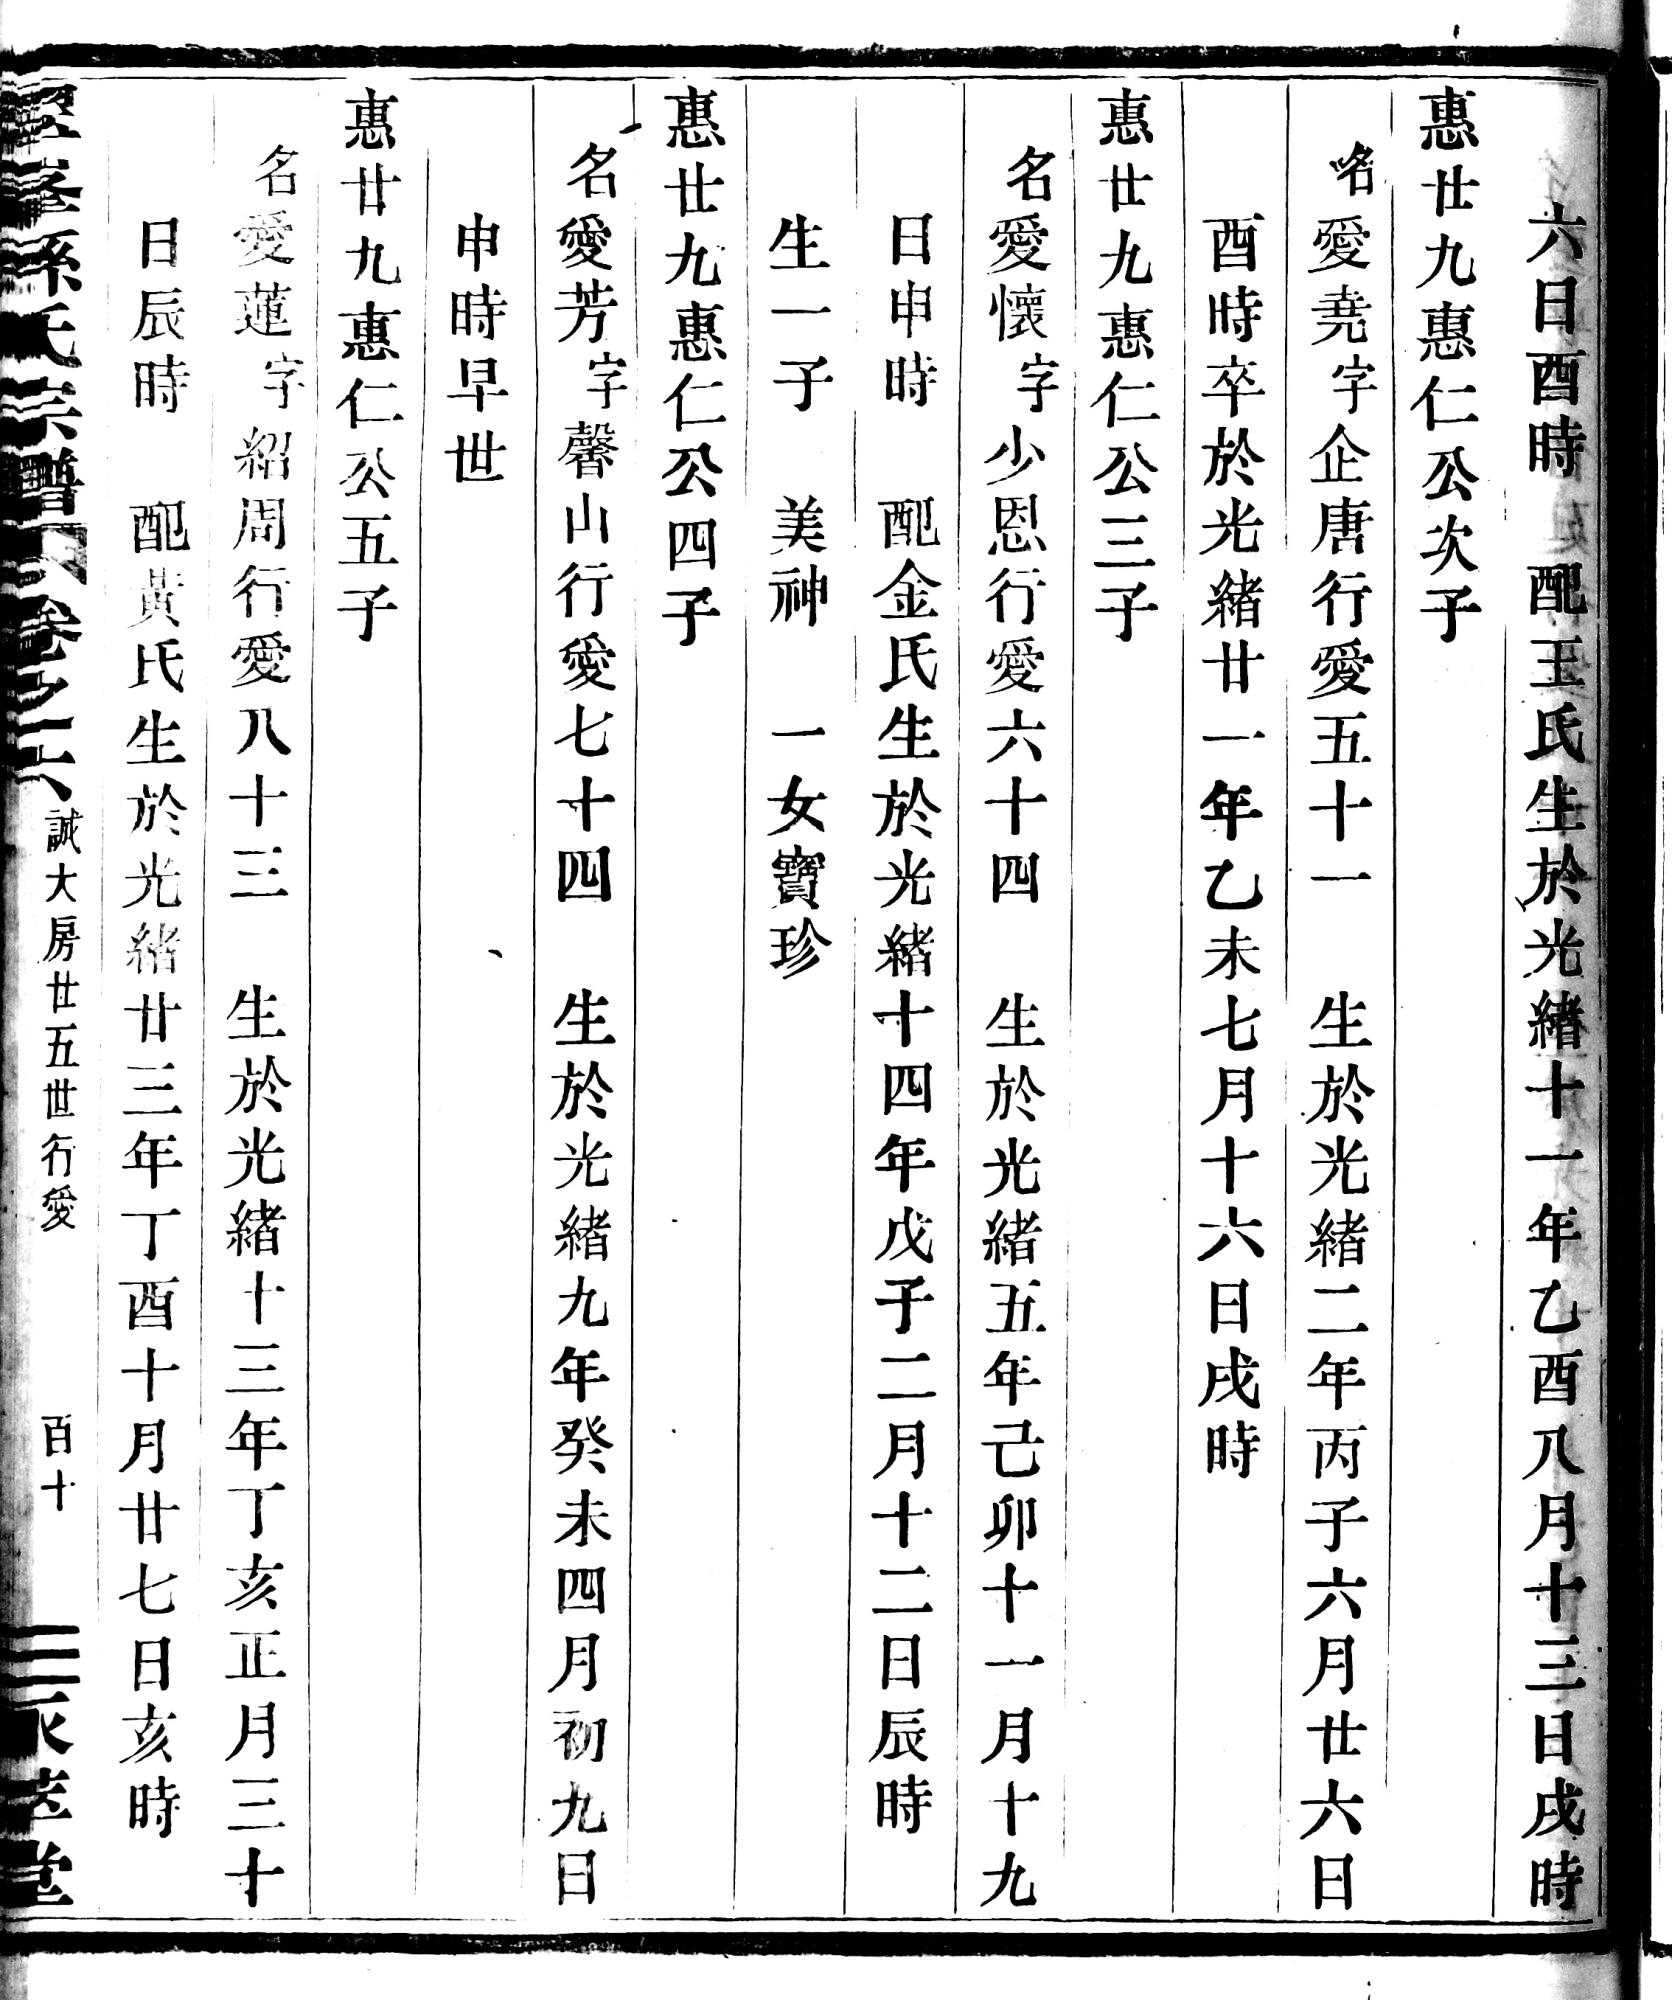 六日酉時　配王氏生於光緒十一年乙酉八月十三日戌時
惠廿九惠仁公次子
名愛堯字企唐行愛五十一　生於光緒二年丙子六月廿六日
酉時卒於光緒廿一年乙未七月十六日戌時
惠廿九惠仁公三子
名愛懷字少恩行愛六十四　生於光緒五年己卯十一月十九
日申時　配金氏生於光緒十四年戊子二月十二日辰時
生一子　美神　一女寶珍
惠廿九惠仁公四子
名愛芳字馨山行愛七十四　生於光緒九年癸未四月初九日
申時早世
惠廿九惠仁公五子
名愛蓮字紹周行愛八十三　生於光緒十三年丁亥正月三十
日辰時　配黃氏生於光緒廿三年丁酉十月廿七日亥時
孫氏宗譜　卷之六　誠大房廿五世行愛　百十　堂